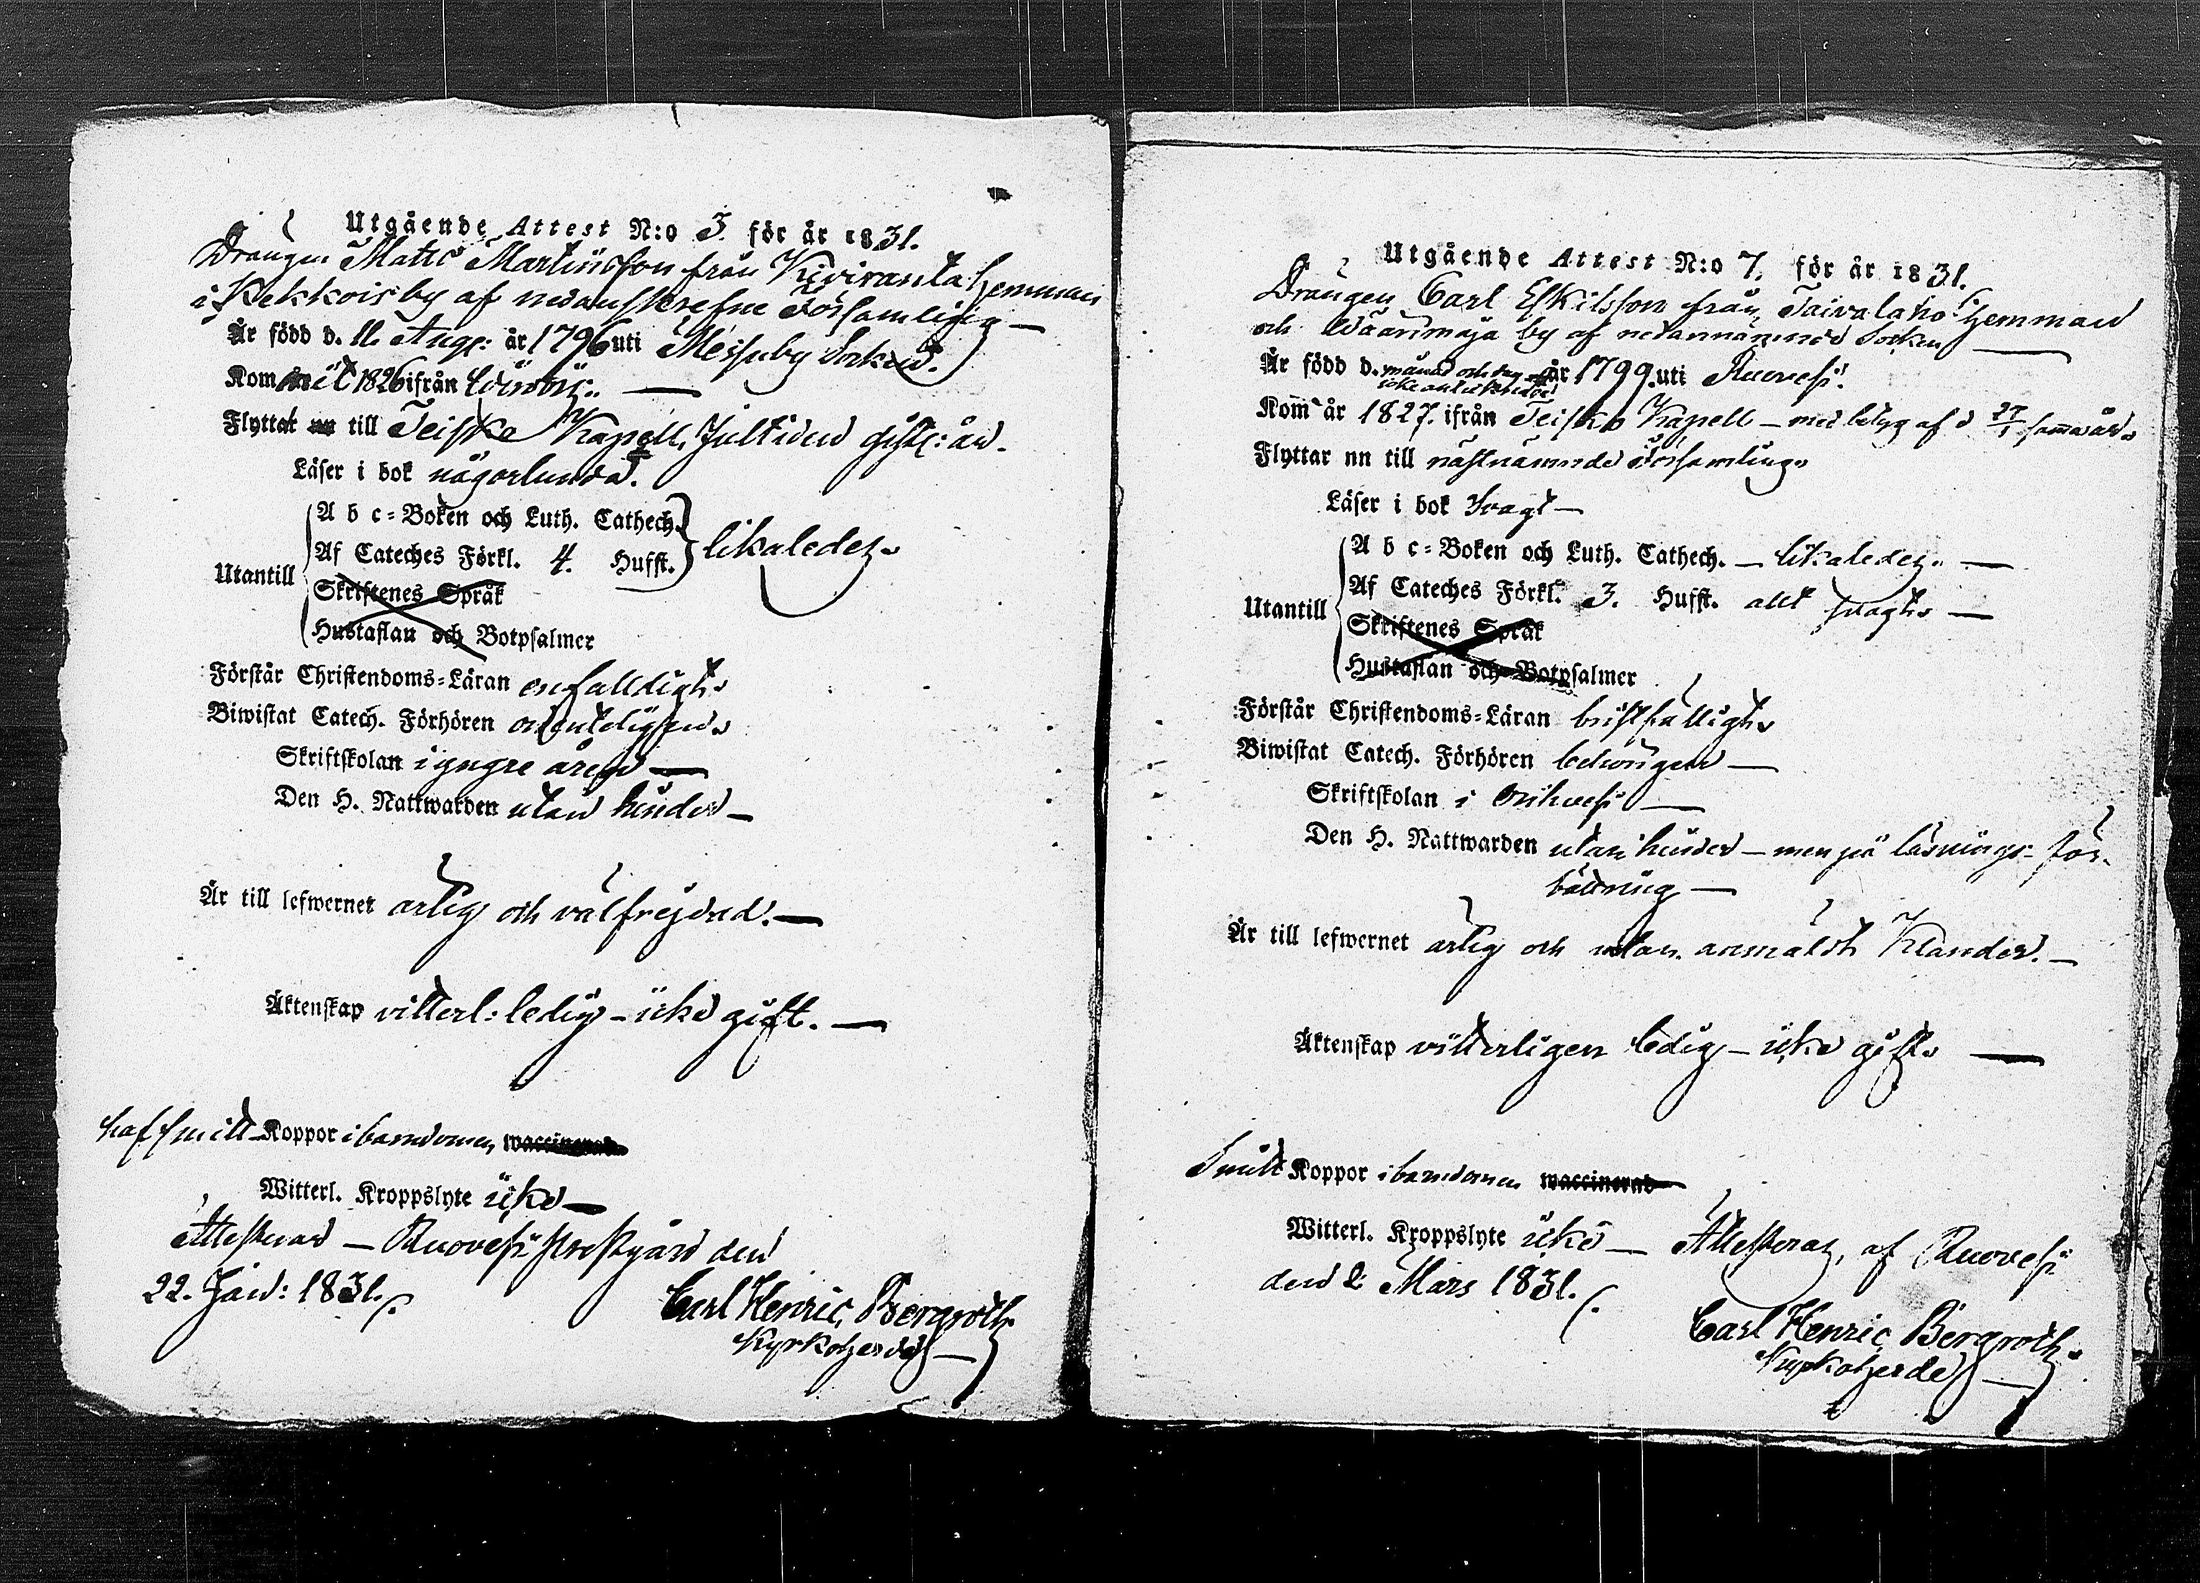 Utgående Attest N:o 3. för år 1831.
Drängen Matts Martinsson från Kiviranta hemman
i Pekkois by af nedanskrefne Församling —
Är född d. 11. Aug: år 1796 uti Messuby Socken.
Kom 1826 ifrån —
Flyttat till Teisko Kapell, Jultiden sistl: år.
Läser i bok någorlunda.
Utantill
A b c-Boken och Luth. Cathech.
Af Cateches Förkl. 4. Hufst. likaledes.
Skriftenes Språk
Hustaflan och Botpsalmer
Förstår Christendoms-Läran enfalldigt.
Biwistat Catech. Förhören ordenteligen.
Skriftskolan i yngre åren —
Den H. Nattwarden utan hinder —
Är till lefwernet ärlig och välfrejdad. —
Äktenskap vitterl: ledig – icke gift. —
haft smitt Koppor i barndomen, waccinerad
Witterl. Kroppslyte icke —
Attesteras — Ruovesi Prestgård den
22. Jan: 1831.
Carl Henric Bergroth.
Kyrkoherde —
Utgående Attest N:o 7. för år 1831.
Drängen Carl Eskilsson från Taivalaho hemman
och Wäärinmaja by af nedannämnde Socken —
Är född d. månad och dag icke antecknade år 1799. uti Ruovesi.
Kom år 1827. ifrån Teisko Kapell – med betyg af d 27/1 samma år.
Flyttar nu till nästnämnde Församling.
Läser i bok svagt —
Utantill
A b c-Boken och Luth. Cathech. — likaledes. —
Af Cateches Förkl. 3. Hufst. allt svagt. —
Skriftenes Språk
Hustaflan och Botpsalmer
Förstår Christendoms-Läran bristfälligt.
Biwistat Catech. Förhören behörigen —
Skriftskolan i Orihvesi —
Den H. Nattwarden utan hinder – men på läsnings-för-
bättring —
Är till lefwernet ärlig och utan anmäldt Klander. —
Äktenskap vitterligen ledig – icke gift. —
Smitt Koppor i barndomen waccinerad
Witterl. Kroppslyte icke — Attesteras, af Ruovesi
den 2 Mars 1831.
Carl Henric Bergroth.
Kyrkoherde —